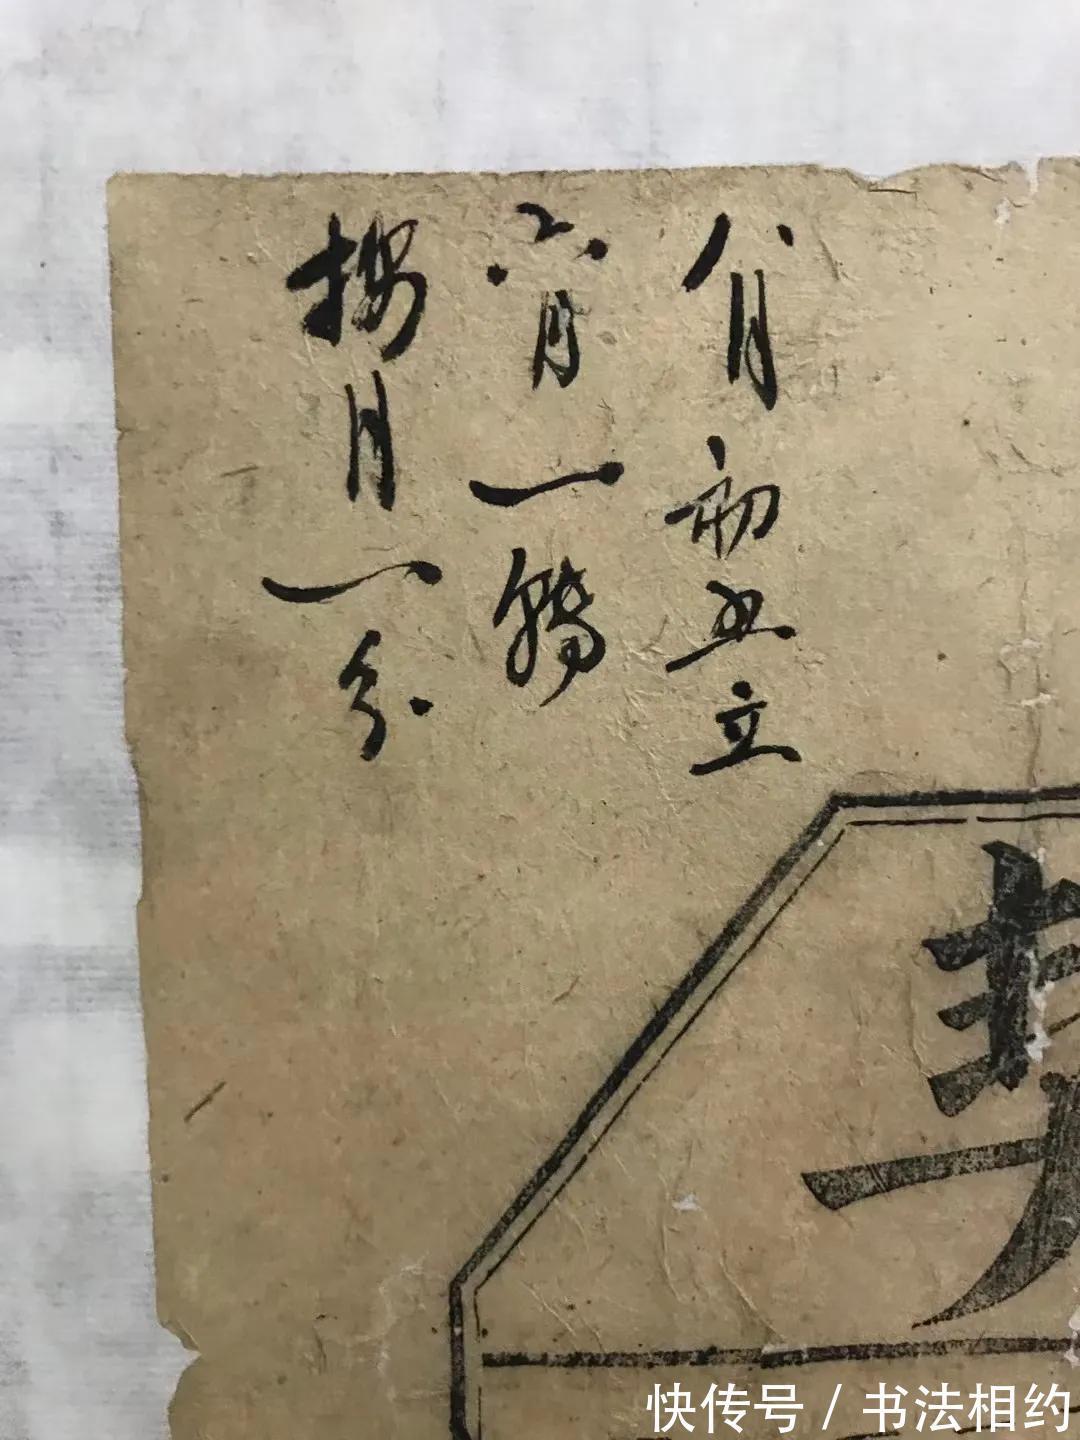 八月初五立
六月一轉
按月一分
契
快传号 / 书法相约